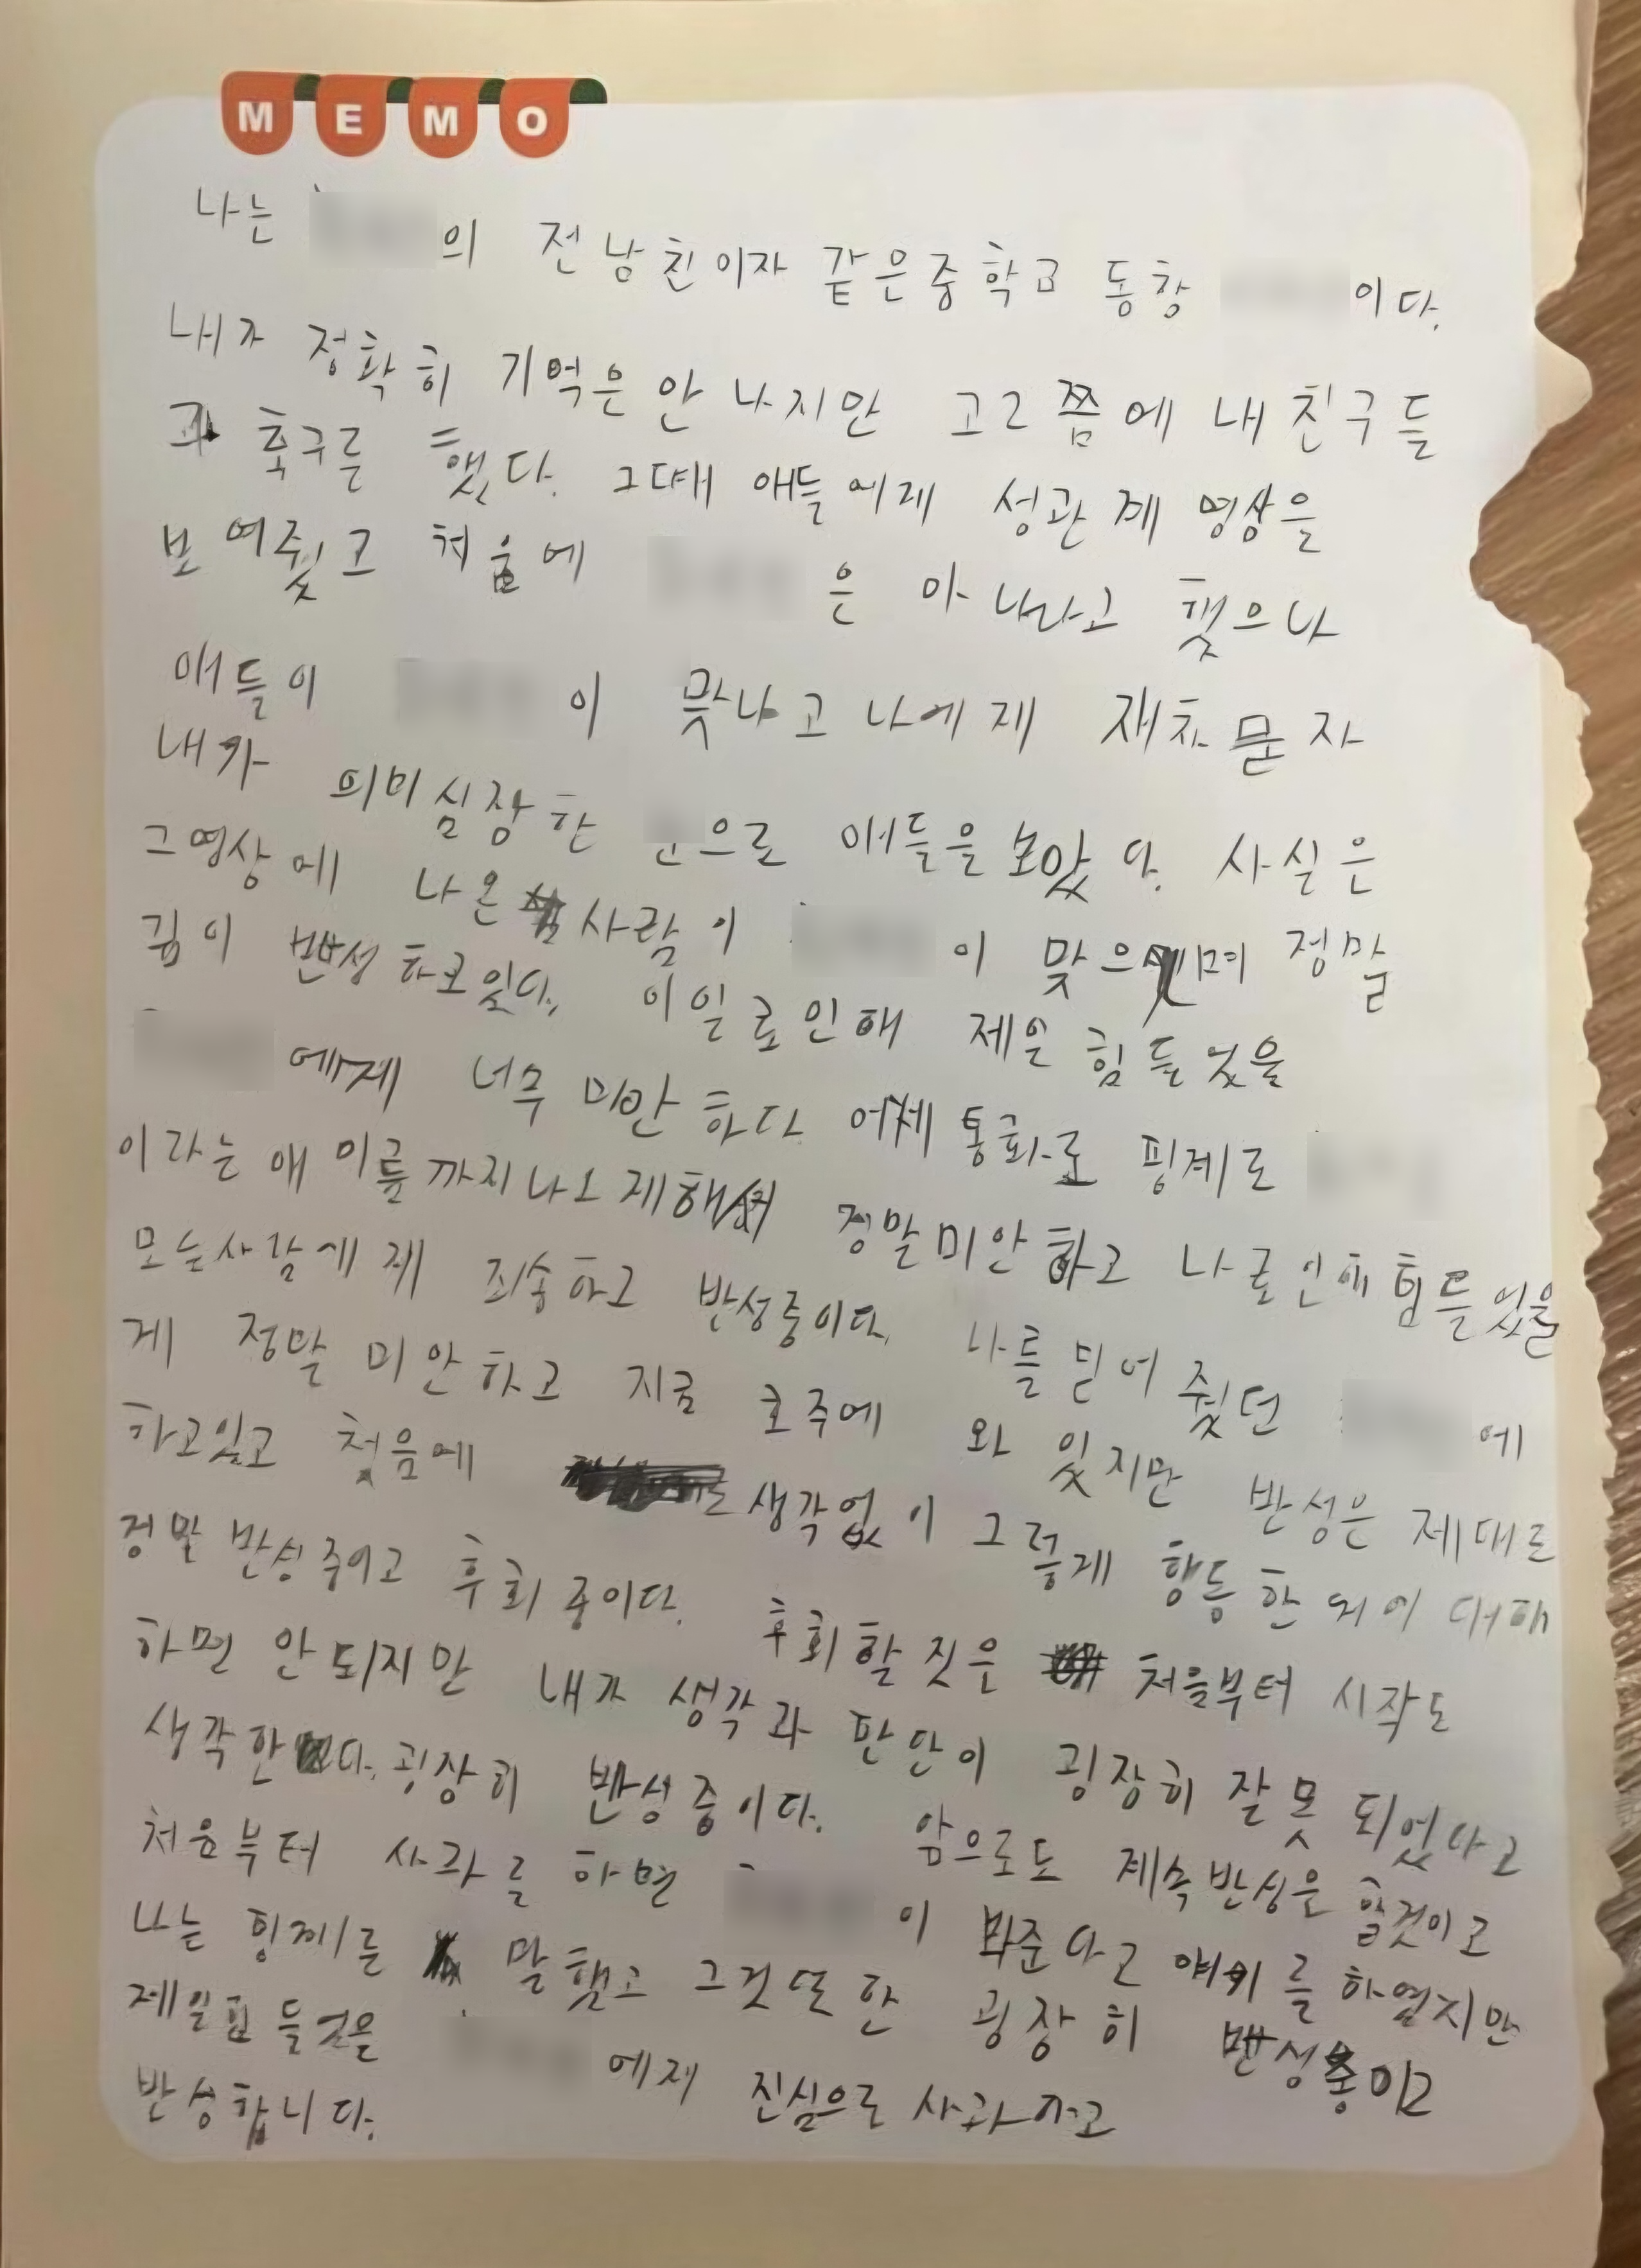 MEMO
나는 의 전남친이자 같은중학교 동창 이다.
내가 정확히 기억은 안 나지만 고2쯤에 내친구들
과 축구를 했다. 그때 애들에게 성관계 영상을
보여줬고 처음에 은 아니라고 했으나
애들이 이 맞냐고 나에게 재차 묻자
내가 의미심장한 으로 애들을 보았다. 사실은
그영상에 나온 사람이 이 맞으며 정말
깊이 반성하고있다. 이일로인해 제일 힘들었을
에게 너무 미안하다 어제 통화로 핑계로
이라는 애 이름까지나오게해서 정말미안하고 나로인해 힘들었을
모든사람에게 죄송하고 반성중이다. 나를 믿어 줬던 에
게 정말 미안하고 지금 호주에 와 있지만 반성은 제대로
하고있고 처음에 생각없이 그렇게 행동한 것에 대해
정말 반성중이고 후회중이다. 후회할 짓은 처음부터 시작도
하면 안되지만 내가 생각과 판단이 굉장히 잘못 되었다고
생각한다. 굉장히 반성중이다. 앞으로도 계속반성은 할것이고
처음부터 사과를 하면 이 봐준다고 얘기를 하였지만
나는 핑계를 말했고 그것또한 굉장히 반성중이고
제일힘들것을 에게 진심으로 사과하고
반성합니다.